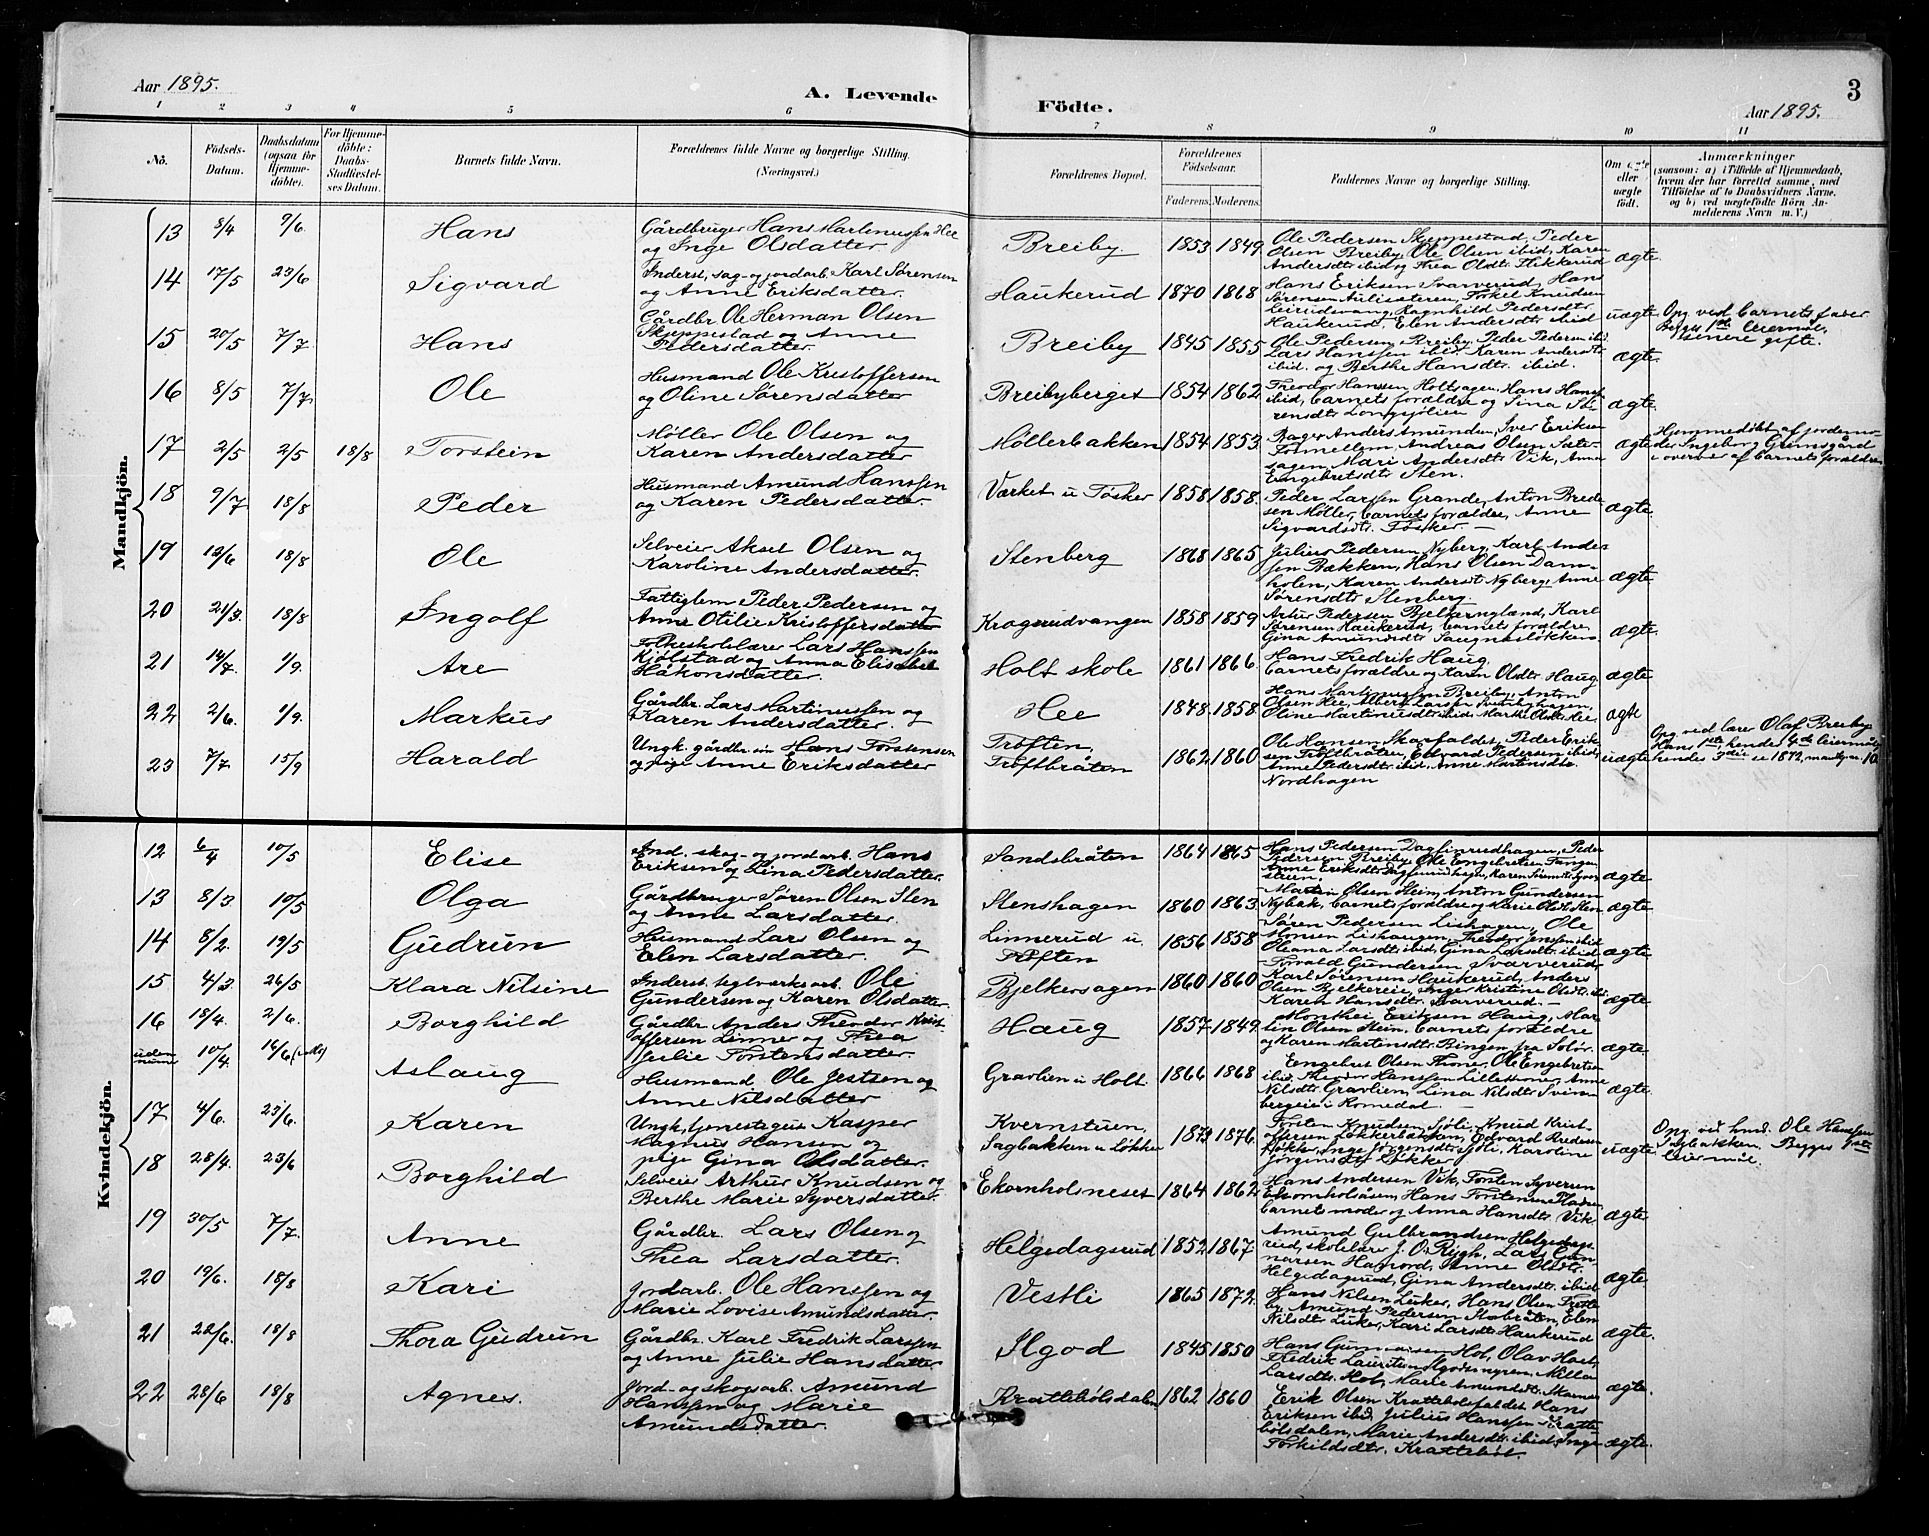 Aar 1895.
A. Levende
Födte.
3
Aar 1895.
1 2 3 4 5 6 7 8 9 10 11
No.
Födsels-Datum.
Daabsdatum (ogsaa for Hjemmedöbte).
For Hjemmedöbte: Daabs-Stadfæstelses Datum.
Barnets fulde Navn.
Forældrenes fulde Navne og borgerlige Stilling.
(Næringsvei.)
Forældrenes Bopæl.
Forældrenes Födselsaar.
Faderens. Moderens.
Faddernes Navne og borgerlige Stilling.
Om ægte eller uægte födt.
Anmærkninger
(saasom: a) i Tilfælde af Hjemmedaab,
hvem der har forrettet samme, med
Tilföielse af to Daabsvidners Navne,
og b) ved uægtefödte Börn Anmelderens Navn m. V.)
Mandkjön.
13 8/4 9/6 Hans Gårdbruger Hans Martinussen Hee og Inge Olsdatter Breiby 1853 1849 Ole Pedersen Skjeppestad, Peder Olsen Breiby, Ole Olsen ibid, Karen Andersdtr ibid og Thea Olsdtr. Flikkerud ægte
14 17/5 23/6 Sigvard Inderst, sag- og jordarb. Karl Sørensen og Anne Eriksdatter. Haukerud 1870 1868 Hans Eriksen Svarverud, Hans Sørensen Torkel Knudsen Ragnhild Pedersdtr Haukerud, Elen Andersdtr ibid uægte Opg. ved barnets fader Begges 1ste leiermål, senere gifte.
15 20/5 7/7 Hans Gårdbr. Ole Herman Olsen Skjeppestad og Anne Pedersdatter. Breiby 1845 1855 Ole Pedersen Breiby, Peder Pedersen ibid Lars Hanssen ibid, Karen Andersdtr ibid. og Berthe Hansdtr. ibid. ægte
16 8/5 7/7 Ole Husmand Ole Kristoffersen og Oline Sørensdatter Breibyberget 1854 1862 Theodor Hanssen Holtsagen, Hans Hanssen ibid, barnets forældre og Sina Sørensdtr ægte
17 2/5 2/5 18/8 Torstein Møller Ole Olsen og Karen Andersdatter Møllerbakken 1854 1853 Bager Anders Amundsen, Iver Eriksen Andreas Olsen Mari Andersdtr Vik, Anna Engebretsdtr Sten. ægte Hjemmedøbt af jordemoder Ingeborg Grimsgård i overvær af barnets forældre
18 9/7 18/8 Peder Husmand Amund Hanssen og Karen Pedersdatter. Værket u Føsker 1858 1858 Peder Larssen Grande, Anton Bredesen Møller, barnets forældre, Anne Sigvardsdtr. Føsker. — ægte
19 12/6 18/8 Ole Selveier Aksel Olsen og Karoline Andersdatter. Stenberg 1868 1865 Julius Pedersen Nyberg, Karl Andersen Bækken, Hans Olsen Damholen, Karen Andersdt Nyberg, Anne Sørensdtr Stenberg. ægte
20 21/3 18/8 Ingolf Fattiglem Peder Pedersen og Anne Otilie Kristoffersdatter Kragerudvangen 1858 1859 Artur Pedersen Karl Sørensen Haukerud, barnets forældre, Gina Amundsdtr ægte
21 14/7 1/9 Are Folkeskolelærer Lars Hanssen Kjølstad og Anna Elisabet Håkonsdatter. Holt skole 1861 1866 Hans Fredrik Haug. barnets forældre og Karen Olsdtr. Haug ægte
22 2/6 1/9 Markus Gårdbr. Lars Martinussen og Karen Andersdatter. Hee 1848 1858 Hans Martinussen Breiby, Anton Olsen Hee, Alberg Larssen Oline Martinusdtr ibid. ægte
23 7/7 15/9 Harald Ungk. gårdbr. Hans Torstensen og pige Anne Eriksdatter Trøften, Trøftbråten 1862 1860 Ole Hansen Skarfaldet, Peder Eriksen Trøftbråten, Edvard Pedersen ibid, Anne Pedersdtr ibid, Anne Martinsdtr. Nordhagen uægte Opg. ved lærer Olaf Breiby Hans 1ste, hendes 4de leiermål
Kvindekjön.
12 6/4 10/5 Elise Ind. skog- og jordarb. Hans Eriksen og Lina Pedersdatter. Sandsbråten 1864 1865 Hans Pedersen Dagfinrudhagen, Peder Pedersen Breiby, Ole Engebretsen ægte
13 8/3 10/5 Olga Gårdbruger Søren Olsen Sten og Anne Larsdatter. Stenshagen 1860 1863 Martin Olsen Stein, Anton Gundersen Nybak, barnets forældre og Marie Olsdtr. Sten ægte
14 8/2. 19/5 Gudrun Husmand Lars Olsen og Elen Larsdatter. Linnerud u. Tøften 1856 1858 Søren Pedersen Lishagen, Ole Monsen Lishaugen, Theodor Jenssen ibid Oleana Larsdtr ibid, Gina Larsdtr. ibid ægte
15 4/3 26/5 Klara Nilsine Inderst teglværksarb. Ole Gundersen og Karen Olsdatter. Bjelkersagen 1860 1860 Torvald Gundersen Svarverud, Karl Sørensen Haukerud, Anders Olsen Bjelkereie, Inger Kristine Olsdtr. ibid Karen Hansdtr. Svarverud. — ægte
16 18/4. 2/6. Borghild Gårdbr. Anders Theodor Kristoffersen Linner og Thea Julie Torstensdatter. Haug 1857 1849 Monthei Eriksen Haug, Martin Olsen Stein, barnets forældre og Karen Martinsdtr. Bingen fra Solør. ægte
uden num 10/4 16/6 Aslaug Husmand. Ole Jensen og Anne Nilsdatter Gravlien u Holt 1866 1868 Engebret Olsen Thone, Ole Engebretsen ibid, Theodor Hanssen Lillethone, Anne Nilsdtr. Gravlien, Lina Nilsdtr Svimbergeie i Romedal. — ægte
17 4/6. 23/6. Karen Ungk, tjenestegut Kasper Magnus Hansen og pige Gina Olsdatter. Kvernstuen, Sagbakken u Løkker 1873 1876 Torsten Knudsen Sjøli, Knud Kristoffersen Løkkerbakken, Edvard Andersen Løkker, Inge Jørgensdtr Sjøli, Karoline Jørgensdtr Løkker uægte Opg. ved hmd. Ole Hanssen Sagbakken. Begges 1ste leiermål.
18 28/4. 23/6 Borghild Selveier Arthur Knudsen og Berthe Marie Syversdatter. Ekornholsneset 1864 1862 Hans Andersen Vik, Torsten Syversen Ekornholsåsen, Hans Torstensen barnets moder og Anna Hansdtr. Vik ægte
19 30/5 7/7. Anne Gårdbr. Lars Olsen og Thea Larsdatter. Helgedagsrud 1852 1867 Amund Gulbrandsen Helgedagsrud, skolelærer J. O. Rygh, Lars Gunnarsen Hanord, Anne Olsdtr. Helgedagsrud, Gina Andersdtr. ibid ægte
20 19/6. 18/8 Kari Jordarb. Ole Hanssen og Marie Lovise Amundsdatter. Vestli 1865 1872 Hans Nilsen Luker, Hans Olsen Amund Pedersen Elen Nilsdtr Luker, Kari Larsdtr Haukerud ægte
21 22/6. 18/8 Thora Gudrun Gårdbr. Karl Fredrik Larssen og Anne Julie Hansdatter Ilgod 1845 1850 Hans Gunnarsen Hof, Olav Hoel, Fredrik Lauritsen Larsdtr. Hof, Marie Amundsdtr. ægte
22 28/6 18/8 Agnes. Jord- og skogsarb. Amund Hanssen og Marie Amundsdatter. Krattebølsdalen 1862 1860 Erik Olsen Krattebølsfaldet, Hans Eriksen ibid, Julius Hanssen Krattebølsdalen, Marie Andersdtr. ibid, Inge Torkildsdtr. Krattebøl. ægte